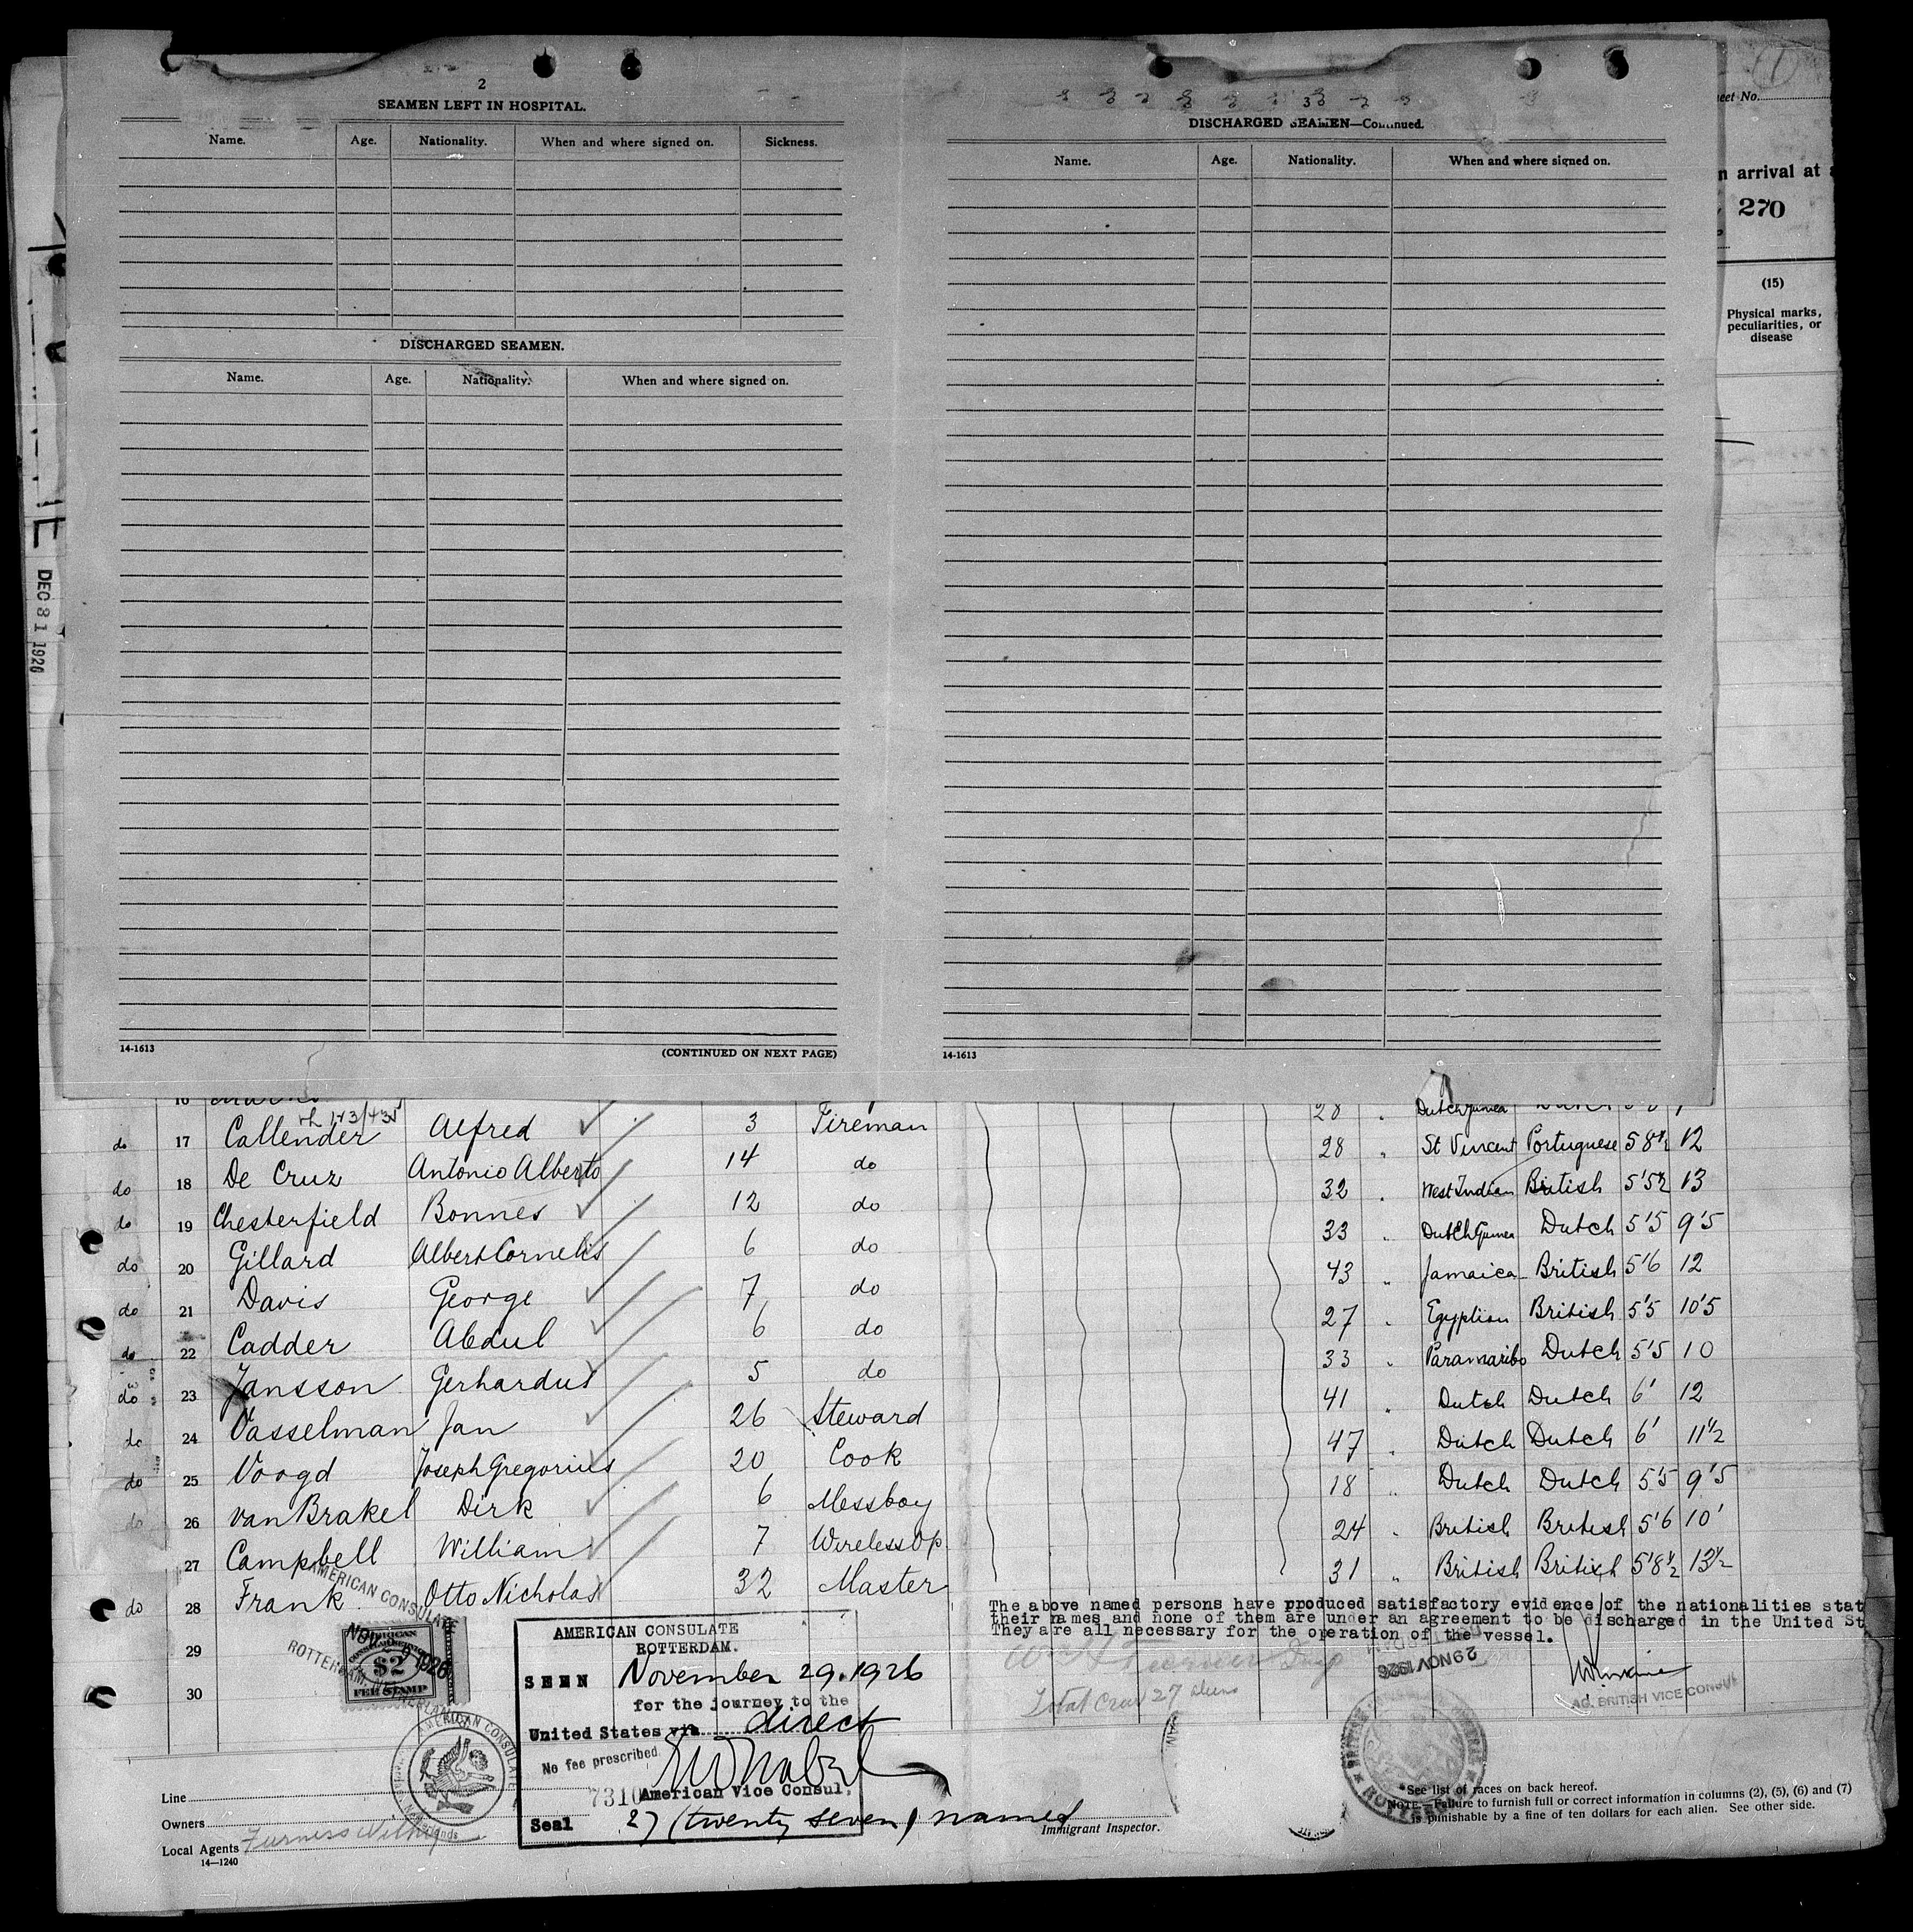 2
SEAMEN LEFT IN HOSPITAL.
Name. Age. Nationality. When and where signed on. Sickness.
DISCHARGED SEAMEN.
Name. Age. Nationality. When and where signed on.
14-1613 (CONTINUED ON NEXT PAGE)
3
DISCHARGED SEAMEN—Continued.
Name. Age. Nationality. When and where signed on.
14-1613
eet No.
n arrival at
270
(15)
Physical marks,
peculiarities, or
disease
DEC 31 1926
16
28 " Dutch Guinea Dutch
do 17 Callender Alfred 3 Fireman 28 " St Vincent Portuguese 5 8½ 12
do 18 De Cruz Antonio Alberto 14 do 32 " West Indian British 5'5½ 13
do 19 Chesterfield Bonnes 12 do 33 " Dutch Guinea Dutch 5'5 9'5
do 20 Gillard Albert Cornelis 6 do 43 " Jamaica British 5'6 12
do 21 Davis George 7 do 27 " Egyptian British 5'5 10'5
do 22 Cadder Abdul 6 do 33 " Paramaribo Dutch 5'5 10
do 23 Jansson Gerhardus 5 do 41 " Dutch Dutch 6' 12
do 24 Vasselman Jan 26 Steward 47 " Dutch Dutch 6' 11½
do 25 Voogd Joseph Gregorius 20 Cook 18 " Dutch Dutch 5'5 9'5
do 26 van Brakel Dirk 6 Messboy 24 " British British 5'6 10'
27 Campbell William 7 Wireless Op 31 " British British 5'8½ 13½
do 28 Frank Otto Nicholas 32 Master
29
30
The above named persons have produced satisfactory evidence of the nationalities stat
their names and none of them are under an agreement to be discharged in the United St
They are all necessary for the operation of the vessel.
29 NOV 1926
AG. BRITISH VICE CONSUL
Total Crew 27 aliens
AMERICAN CONSULATE
NOV 29 1926
ROTTERDAM, NETHERLANDS
AMERICAN
CONSULAR SERVICE
$2
FEE STAMP
AMERICAN CONSULATE
AMERICAN CONSULATE
ROTTERDAM.
SEEN November 29. 1926
for the journey to the
United States via direct
No fee prescribed.
7310 American Vice Consul,
Seal 27 (twenty seven) named
Line
Owners
Local Agents Furness Withy
14—1240
Immigrant Inspector.
*See list of races on back hereof.
NOTE.—Failure to furnish full or correct information in columns (2), (5), (6) and (7)
is punishable by a fine of ten dollars for each alien. See other side.